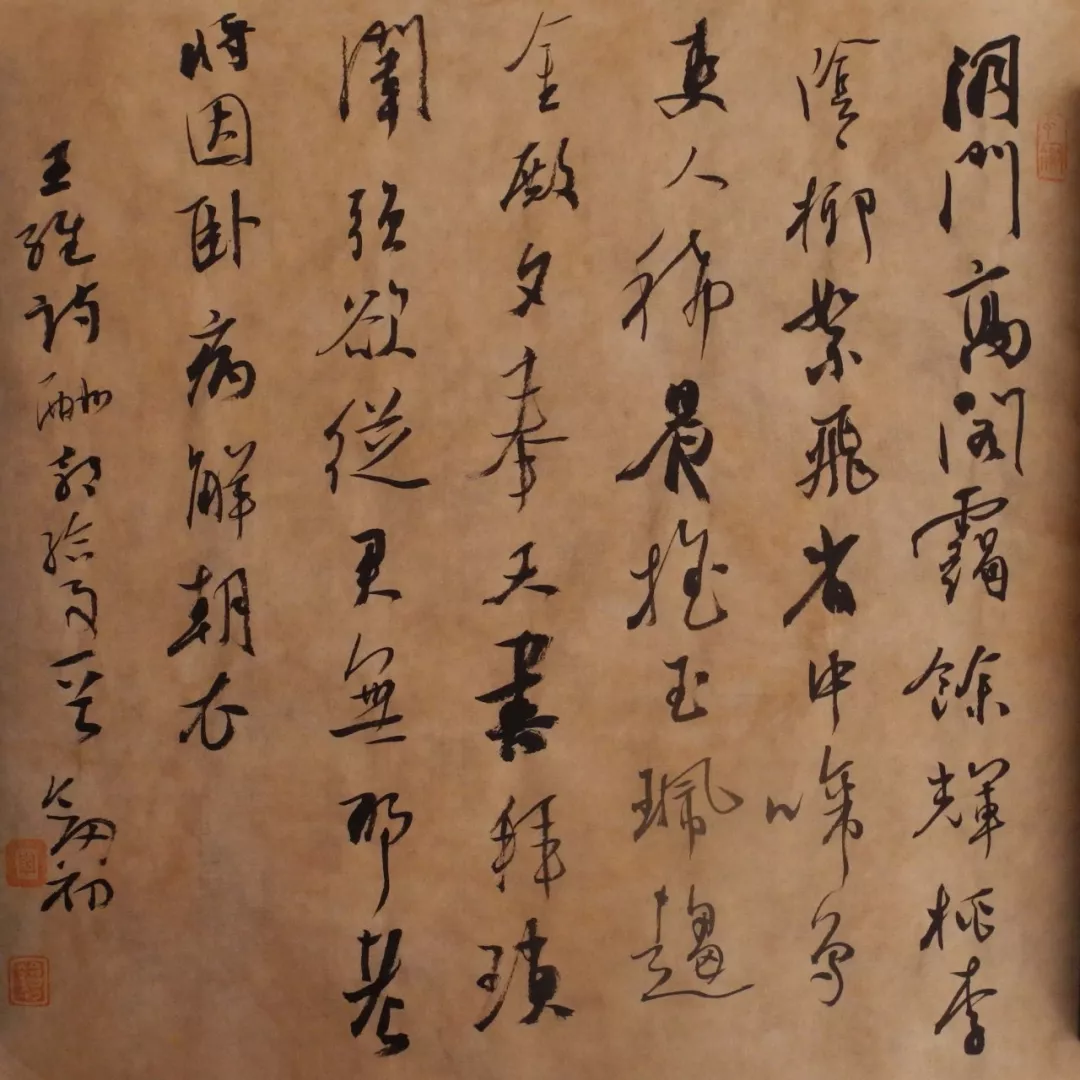 洞門高閣靄餘輝桃李
陰〻柳絮飛省中啼鳥
吏人稀晨搖玉珮趨
金殿夕奉天書拜瑣
闈強欲從君無那老
將因卧病解朝衣
王維詩酬郭給事一首 初